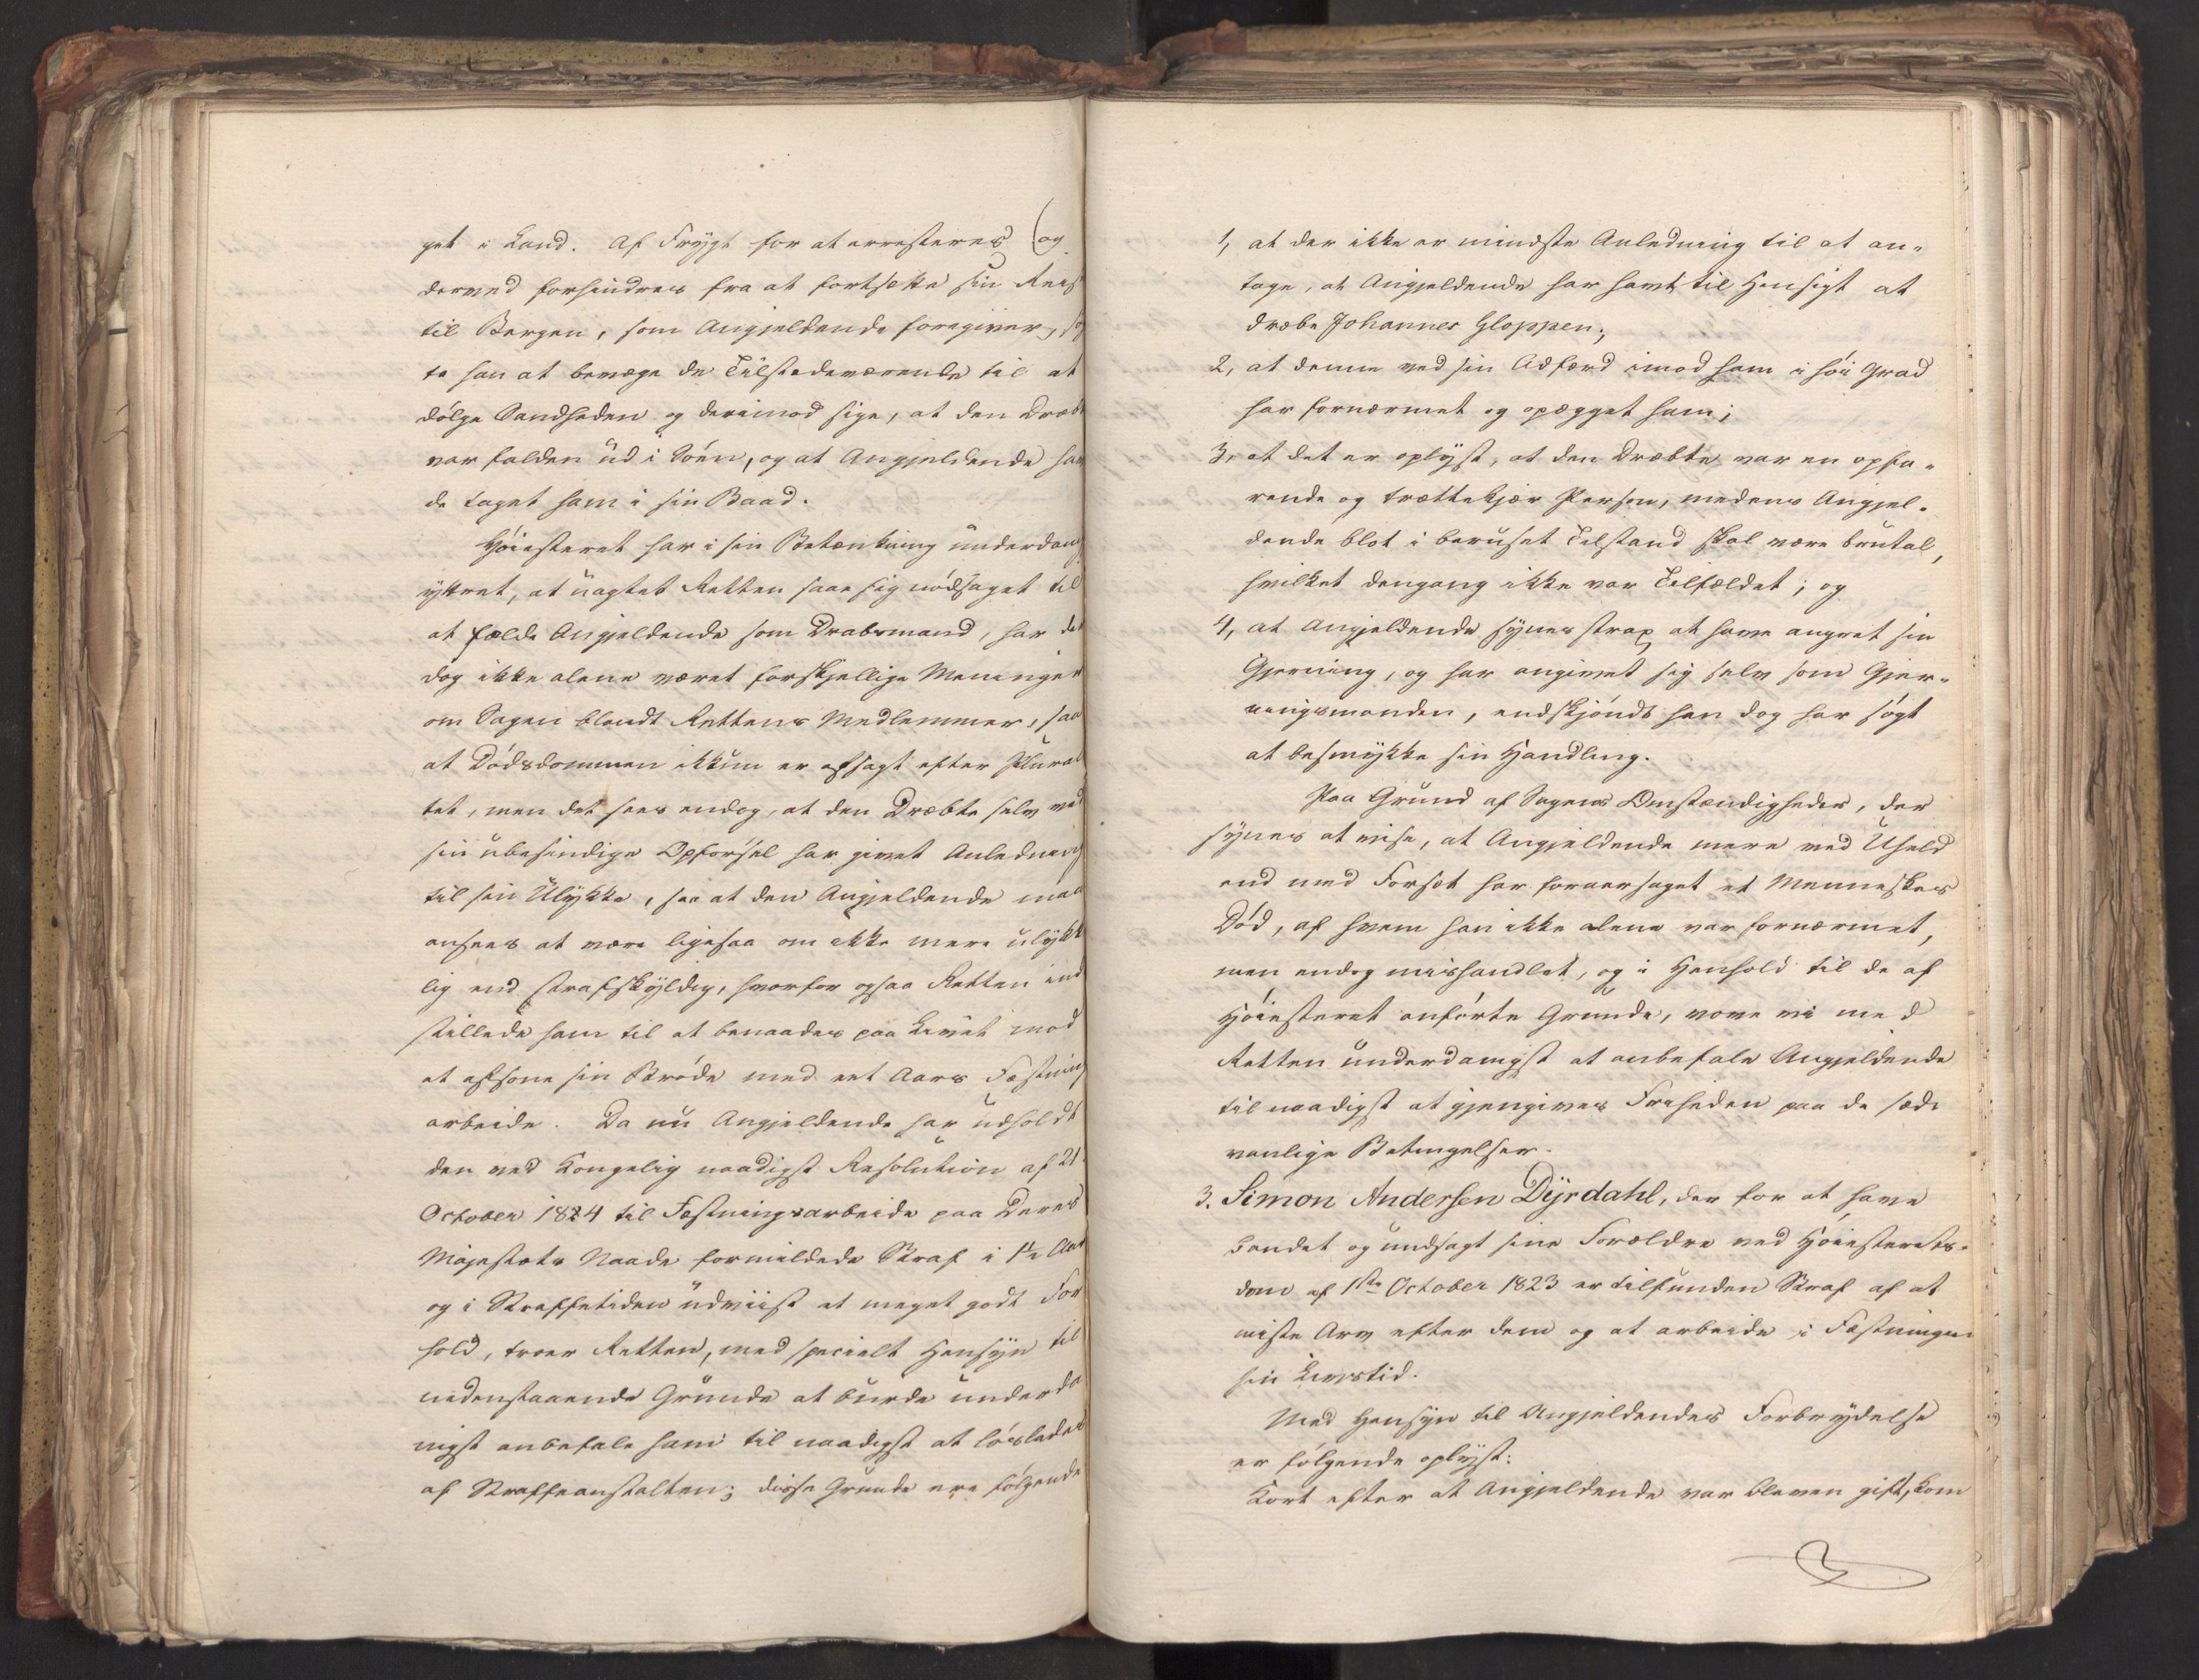 get i Land. Af Frygt for at arresteres (og
derved forhindres fra at fortsætte sin Reis
til Bergen, som Angjeldende foregiver, søg
te han at bevæge de Tilstedeværende til at
dölge Sandheden og derimod sige, at den Dræbt
var falden ud i Söen, og at Angjeldende hav
de taget ham i sin Baad.
Höiesteret har i sin Betænkning underdanig
yttret, at uagtet Retten saae sig nödsaget til
at fælde Angjeldende som Drabsmand, har det
dog ikke alene været forskjellige Meninger
om Sagen blandt Rettens Medlemmer, saa
at Dödsdommen ikkun er afsagt efter Plurali
tet, men det sees endog, at den Dræbte selv ved
sin ubesindige Opförsel har givet Anledning
til sin Ulykke, saa at den Angjeldende maa
ansees at være ligesaa om ikke mere ulykke
lig end strafskyldig, hvorfor ogsaa Retten ind
stillede ham til at benaades paa Livet mod
at afsone sin Bröde med eet Aars Fæstnings
arbeide. Da nu Angjeldende har udholdt
den ved Kongelig naadigst Resolution af 21
October 1824 til Fæstningsarbeide paa Deres
Majestæts Naade formildede Straf i 1½ Aar
og i Straffetiden udviist et meget godt For
hold, troer Retten, med specielt Hensyn til
nedenstaaende Grunde at burde underda
nigst anbefale ham til naadigst at löslades
af Straffeanstalten; disse Grunde ere fölgende
1, at der ikke er mindste Anledning til at an-
tage, at Angjeldende har havt til Hensigt at
dræbe Johannes Gloppen;
2, at denne ved sin Adfærd imod ham i höi Grad
har fornærmet og opægget ham;
3, at det er oplyst, at den Dræbte var en opfa-
rende og trættekjær Person, medens Angjel-
dende blot i beruset Tilstand skal være brutal,
hvilket dengang ikke var Tilfældet; og
4, at Angjeldende synes strax at have angret sin
Gjerning, og har angivet sig selv som Gjer-
ningsmanden, endskjöndt han dog har sögt
at besmykke sin Handling.
Paa Grund af Sagens Omstændigheder, der
synes at vise, at Angjeldende mere ved Uheld
end med Forsæt har foraarsaget et Menneskes
Död, af hvem han ikke alene var fornærmet,
men endog mishandlet, og i Henhold til de af
Höiesteret anförte Grunde, vove vi med
Retten underdanigst at anbefale Angjeldende
til naadigst at gjengives Friheden paa de sæd-
vanlige Betingelser.
3. Simon Andersen Dyrdahl, der for at have
bandet og undsagt sine Forældre ved Höiesterets-
dom af 1ste October 1823 er tilfunden Straf af at
miste Arv efter dem og at arbeide i Fæstningen
sin Livstid.
Med Hensyn til Angjeldendes Forbrydelse
er fölgende oplyst:
Kort efter at Angjeldende var bleven gift, kom